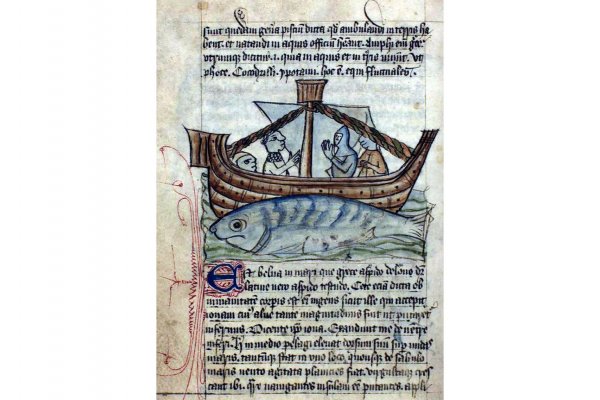 sunt quedam gen̄a pisciū dicta qd̄ ambulandi in terris ha
bent. et natandi in aquis officiū hēant. Amphi em̄ grece
utrumque dicitur. i. quia in aquis et in t̄ris uiuūt. vt
phoce. Cocodrilli. ypotami. hoc ē. equi fluctuales.
Est belua in mari que grece aspido delone dr̄
latine uero aspido testudo. Cete eciā dicta ob
inmanitatem corpis est em̄ ingens sicut ille qui accepit
ionam cuiꝰ aluꝰ tante magnitudinis fuit ut putaret
infernus. Dicente ip̄o iona. Exaudiuit me de uentre
inferi. h̄ in medio pelagi eleuat dorsum suū sup̄ undas
maris. tantūque stat in uno loco. quousque de sabulo
maris uento agitata planicies fiat. virgultaque cres
cant ibi. nauigantes insulam eē putantes. appli